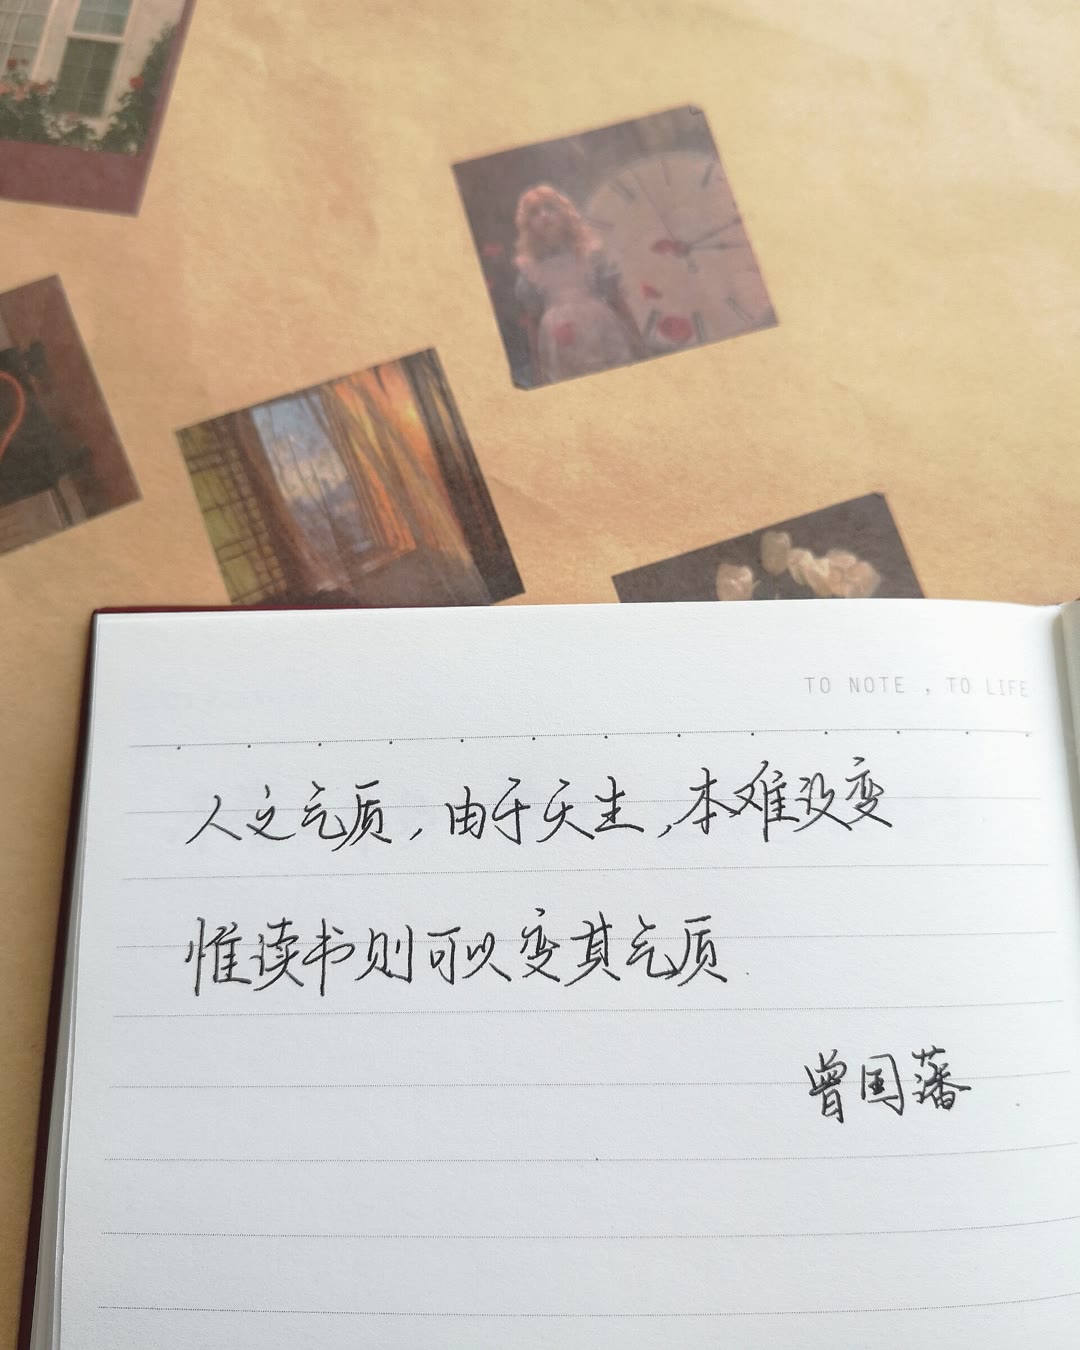 TO NOTE , TO LIFE
人之气质，由于天生，本难改变
惟读书则可以变其气质.
曾国藩